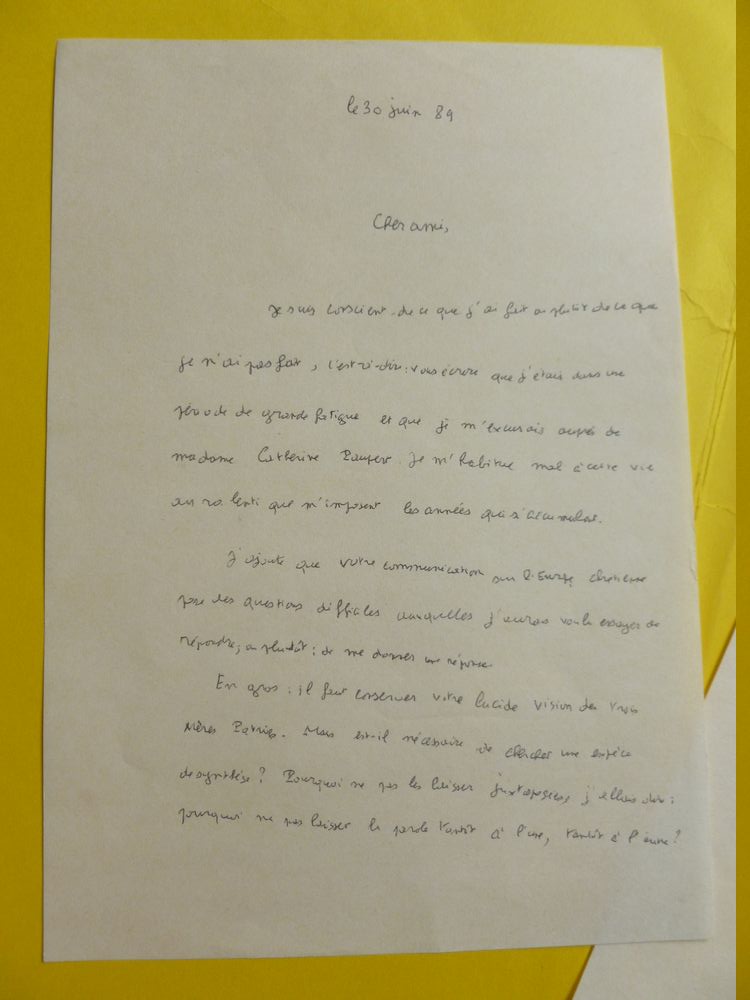 le 30 juin 89
Cher ami,
Je suis conscient de ce que j'ai fait ou plutôt de ce que
je n'ai pas fait, c'est-à-dire: vous écrire que j'étais dans une
période de grande fatigue et que je m'excusais auprès de
madame Catherine . Je m'habitue mal à cette vie
au ralenti que m'imposent les années qui s'accumulent.
J'ajoute que votre communication sur l'Europe chrétienne
pose des questions difficiles auxquelles j'aurais voulu essayer de
répondre, ou plutôt: de me donner une réponse.
En gros: il faut conserver votre lucide vision des trois
Mères Patries. Mais est-il nécessaire de chercher une espèce
de synthèse? Pourquoi ne pas les laisser juxtaposées, j'allais dire:
pourquoi ne pas laisser la parole tantôt à l'une, tantôt à l'autre?